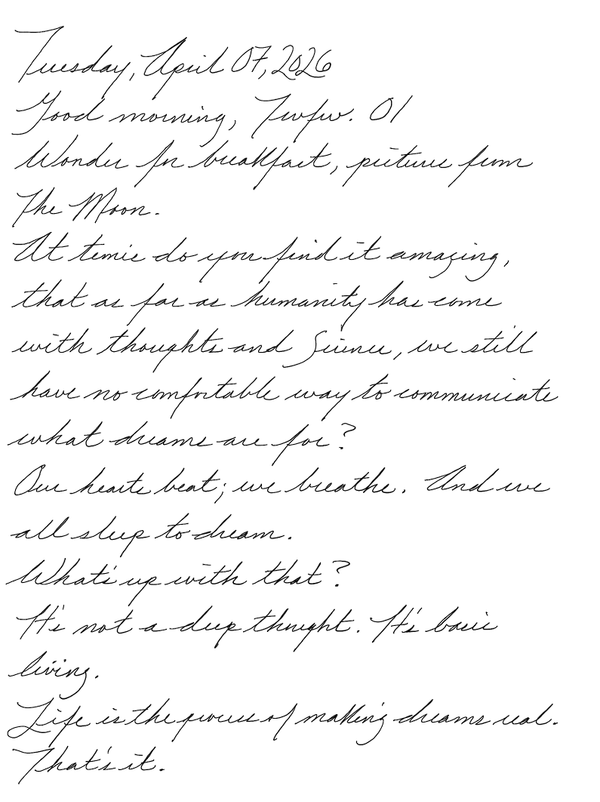 Tuesday, April 07, 2026
Good morning, Twfw. 01
Wonder for breakfast, picture from
The Moon.
At times do you find it amazing,
that as far as humanity has come
with thoughts and Science, we still
have no comfortable way to communicate
what dreams are for?
Our hearts beat; we breathe. And we
all sleep to dream.
What's up with that?
It's not a deep thought. It's basic
living.
Life is the process of making dreams real.
That's it.